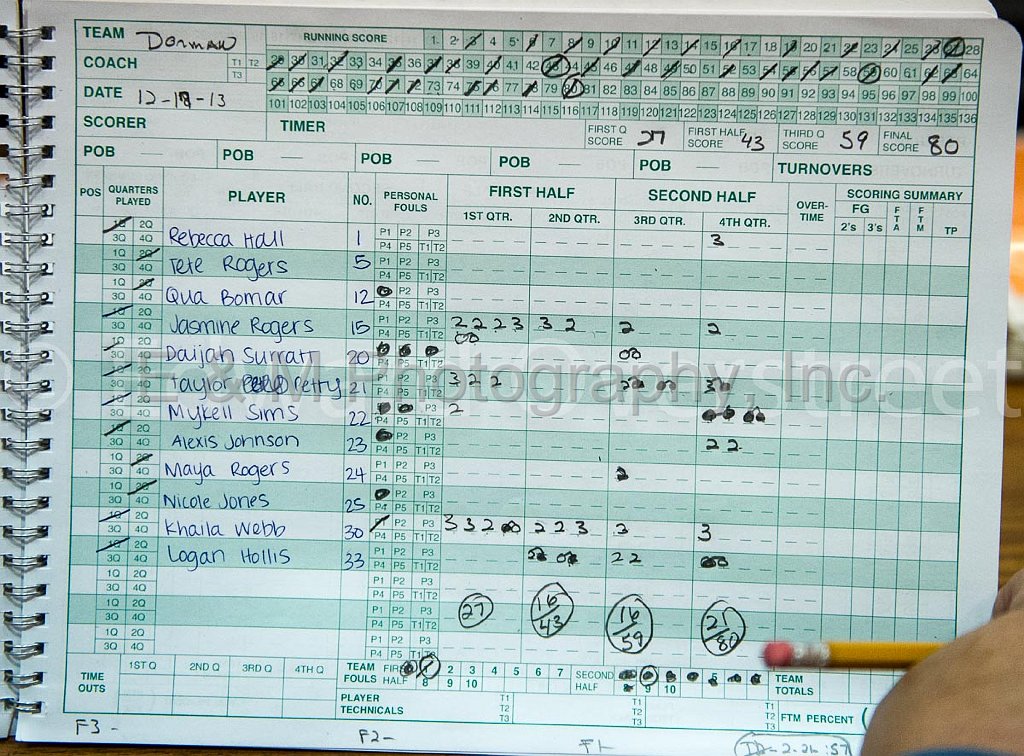 TEAM Dorman RUNNING SCORE 1 2 3 4 5 6 7 8 9 10 11 12 13 14 15 16 17 18 19 20 21 22 23 24 25 26 27 28
COACH T1 T2 T3 29 30 31 32 33 34 35 36 37 38 39 40 41 42 43 44 45 46 47 48 49 50 51 52 53 54 55 56 57 58 59 60 61 62 63 64
DATE 12-18-13 65 66 67 68 69 70 71 72 73 74 75 76 77 78 79 80 81 82 83 84 85 86 87 88 89 90 91 92 93 94 95 96 97 98 99 100
101 102 103 104 105 106 107 108 109 110 111 112 113 114 115 116 117 118 119 120 121 122 123 124 125 126 127 128 129 130 131 132 133 134 135 136
SCORER TIMER FIRST Q SCORE 27 FIRST HALF SCORE 43 THIRD Q SCORE 59 FINAL SCORE 80
POB — POB — POB — POB — POB — TURNOVERS
POS QUARTERS PLAYED PLAYER NO. PERSONAL FOULS FIRST HALF SECOND HALF OVER-TIME SCORING SUMMARY
1ST QTR. 2ND QTR. 3RD QTR. 4TH QTR. FG 2's 3's FTA FTM TP
1Q 2Q 3Q 4Q Rebecca Hall 1 P1 P2 P3 P4 P5 T1 T2 3
1Q 2Q 3Q 4Q Tete Rogers 5 P1 P2 P3 P4 P5 T1 T2
1Q 2Q 3Q 4Q Qua Bomar 12 P2 P3 P4 P5 T1 T2
1Q 2Q 3Q 4Q Jasmine Rogers 15 P1 P2 P3 P4 P5 T1 T2 2 2 2 3 3 2 2 2
1Q 2Q 3Q 4Q Daijah Surratt 20 P4 P5 T1 T2
1Q 2Q 3Q 4Q Taylor Petty 21 P1 P2 P3 P4 P5 T1 T2 3 2 2 3
1Q 2Q 3Q 4Q Mykell Sims 22 P3 P4 P5 T1 T2 2
1Q 2Q 3Q 4Q Alexis Johnson 23 P2 P3 P4 P5 T1 T2 2 2
1Q 2Q 3Q 4Q Maya Rogers 24 P1 P2 P3 P4 P5 T1 T2 2
1Q 2Q 3Q 4Q Nicole Jones 25 P2 P3 P4 P5 T1 T2
1Q 2Q 3Q 4Q Khaila Webb 30 P1 P2 P3 P4 P5 T1 T2 3 3 2 2 2 3 3 3
1Q 2Q 3Q 4Q Logan Hollis 33 P1 P2 P3 P4 P5 T1 T2 2 2
1Q 2Q 3Q 4Q P1 P2 P3 P4 P5 T1 T2
1Q 2Q 3Q 4Q P1 P2 P3 P4 P5 T1 T2 27 16/43 16/59 21/80
1Q 2Q 3Q 4Q P1 P2 P3 P4 P5 T1 T2
TIME OUTS 1ST Q 2ND Q 3RD Q 4TH Q TEAM FOULS FIRST HALF 1 2 3 4 5 6 7 8 9 10 SECOND HALF 5 9 10 TEAM TOTALS
PLAYER TECHNICALS T1 T2 T3 T1 T2 T3 T1 T2 T3 FTM PERCENT (
F3 - F2 - F1
© E & M Photography, Inc.